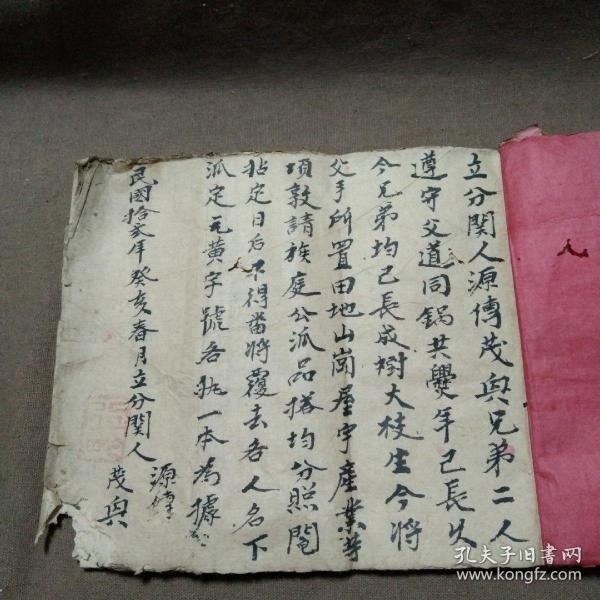 立分関人源傳茂與兄弟二人
遵守父道同鍋共爨年已長久
今兄弟均已長成樹大枝生今將
父手所置田地山崗屋宇產業等
項敦請族庭公派品搭均分照鬮
拈定日后不得畨將覆去各人名下
派定元黄字號各執一本為據
民國拾弍年癸亥春月立分関人
源傳
茂與
孔夫子旧書网
www.kongfz.com